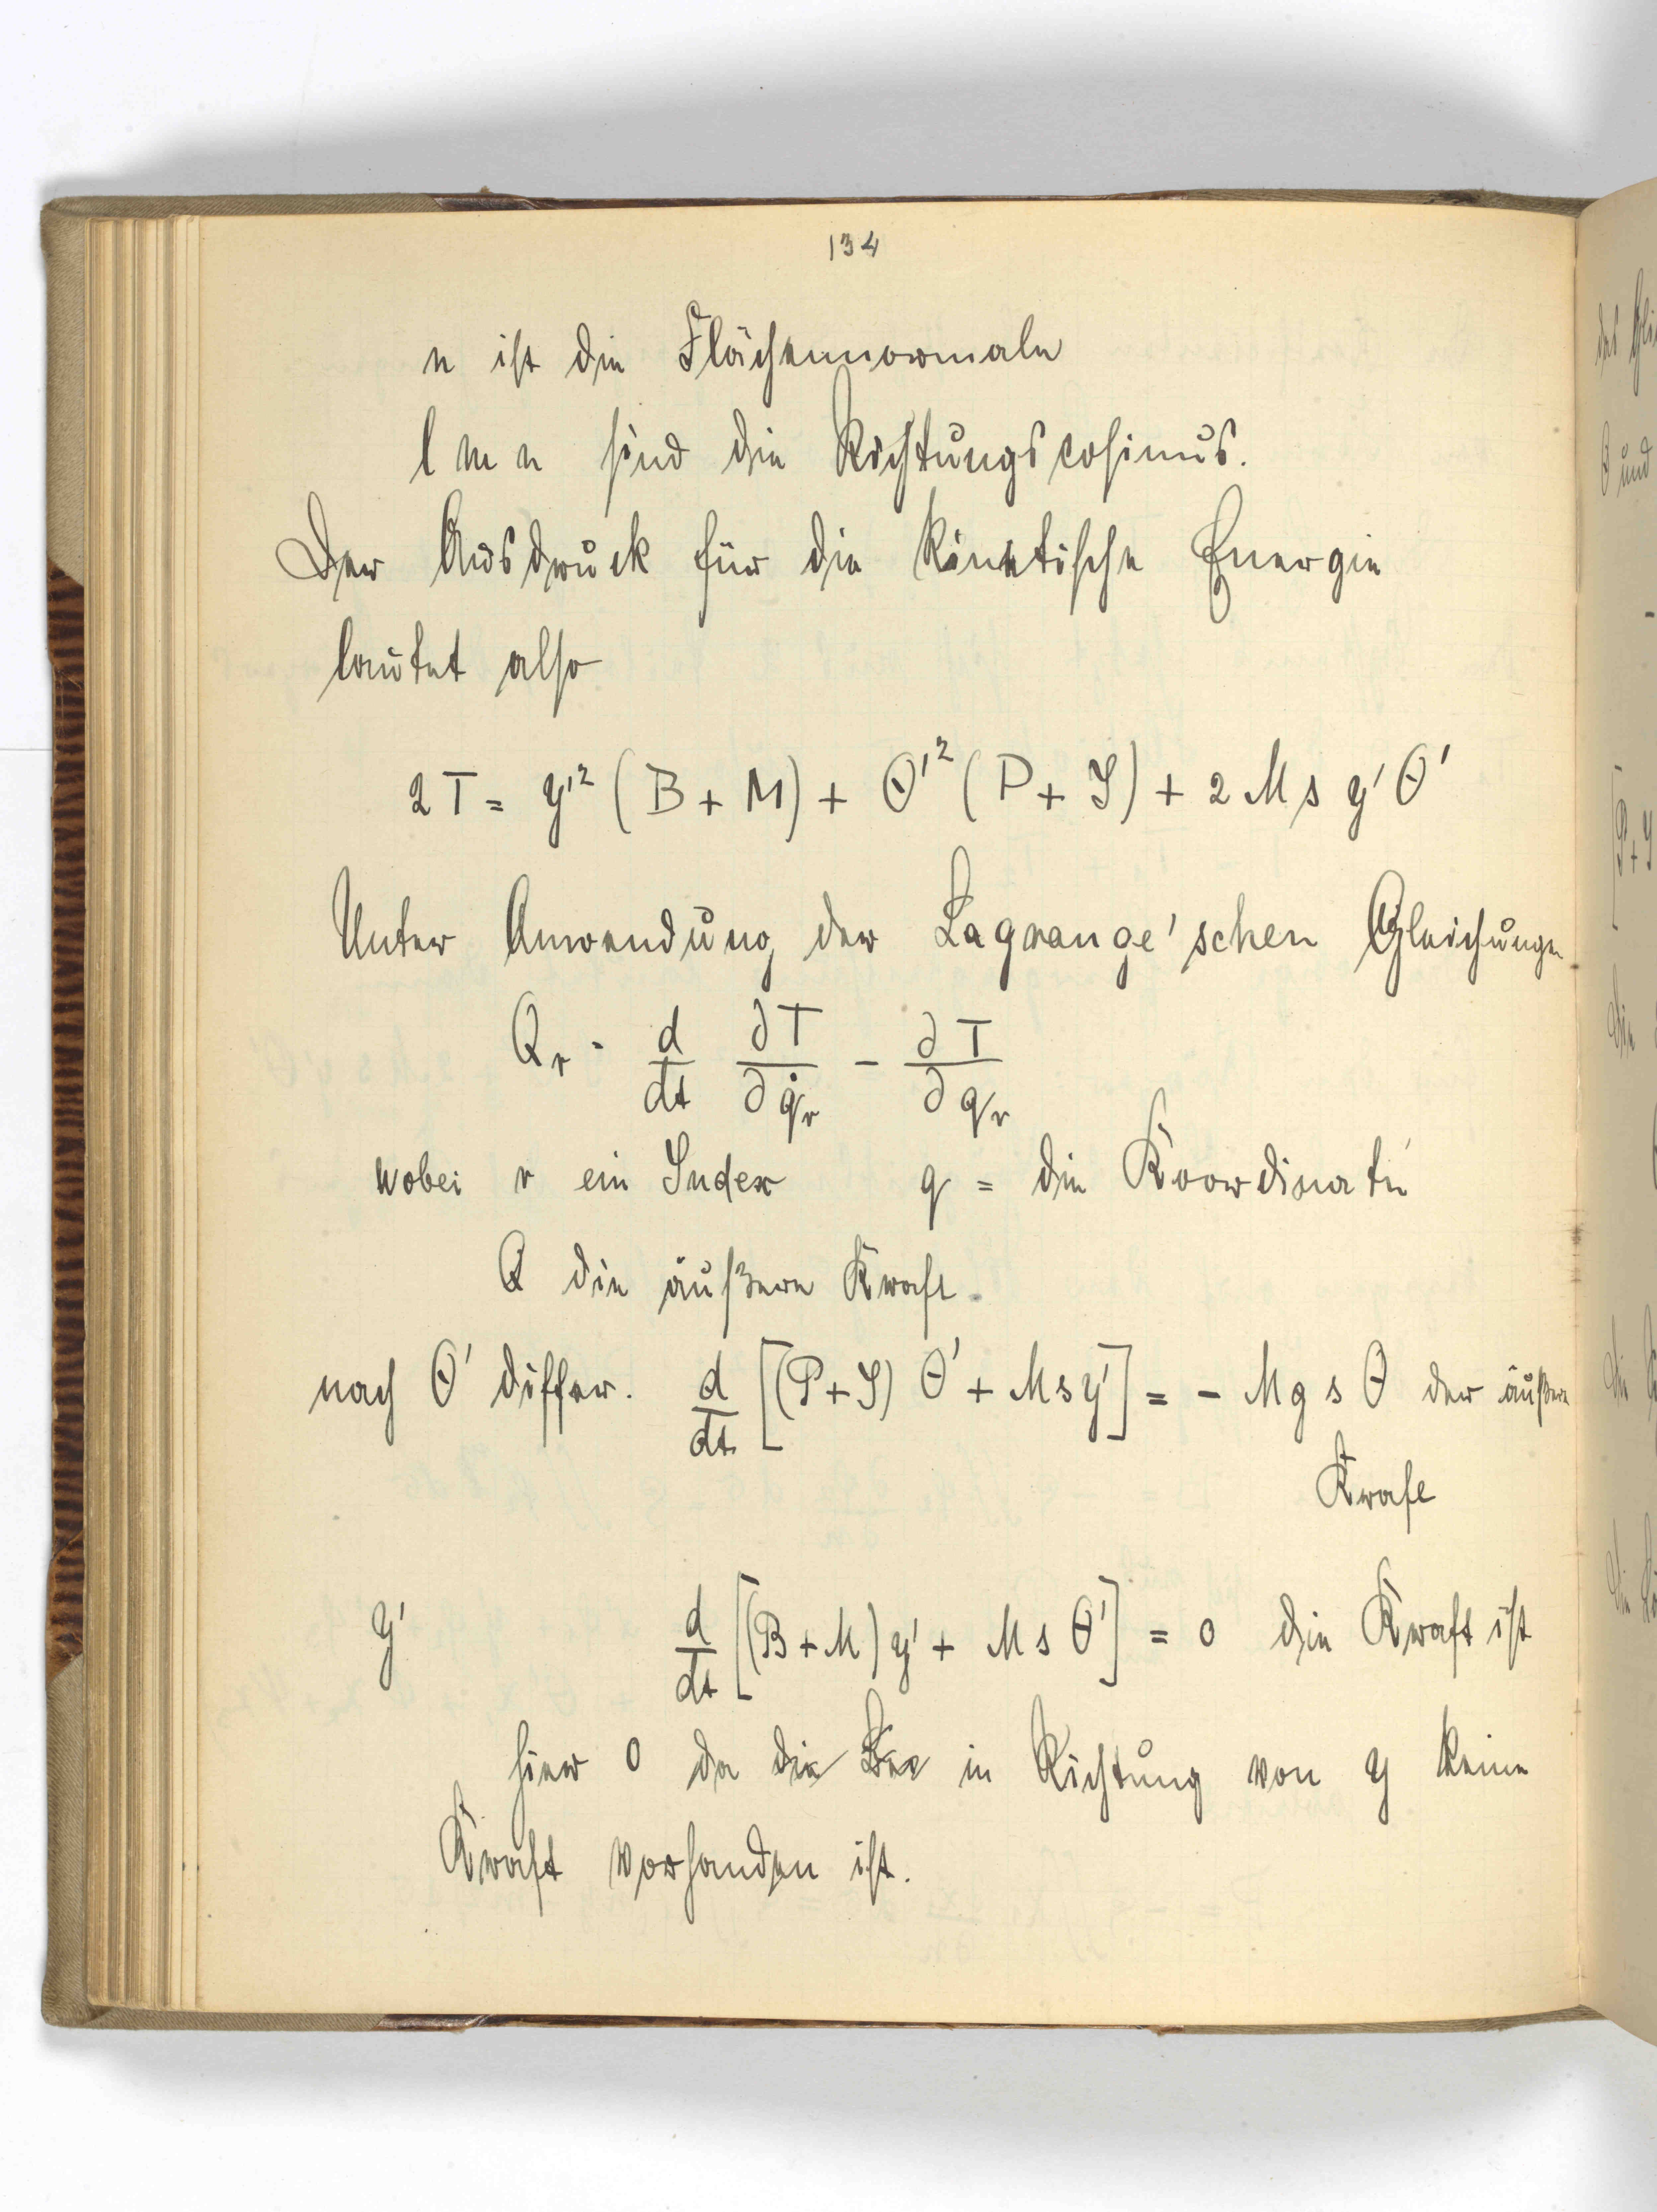 134
n ist die Flächennormale
l m n sind die Richtungscosinus.
Der Ausdruck für die kinetische Energie
lautet also
2T = y'² (B + M) + Θ'² (P + J) + 2 M s y' Θ'
Unter Anwendung der Lagrange'schen Gleichungen
Q_r = d/dt ∂T/∂q̇_r − ∂T/∂q_r
wobei r ein Index q = die Koordinate
Q die äußere Kraft.
nach Θ' differ. d/dt [(P + J) Θ' + M s y'] = − M g s Θ der äußere
Kraft
y' d/dt [(B + M) y' + M s Θ'] = 0 die Kraft ist
hier 0 da die in Richtung von y keine
Kraft vorhanden ist.